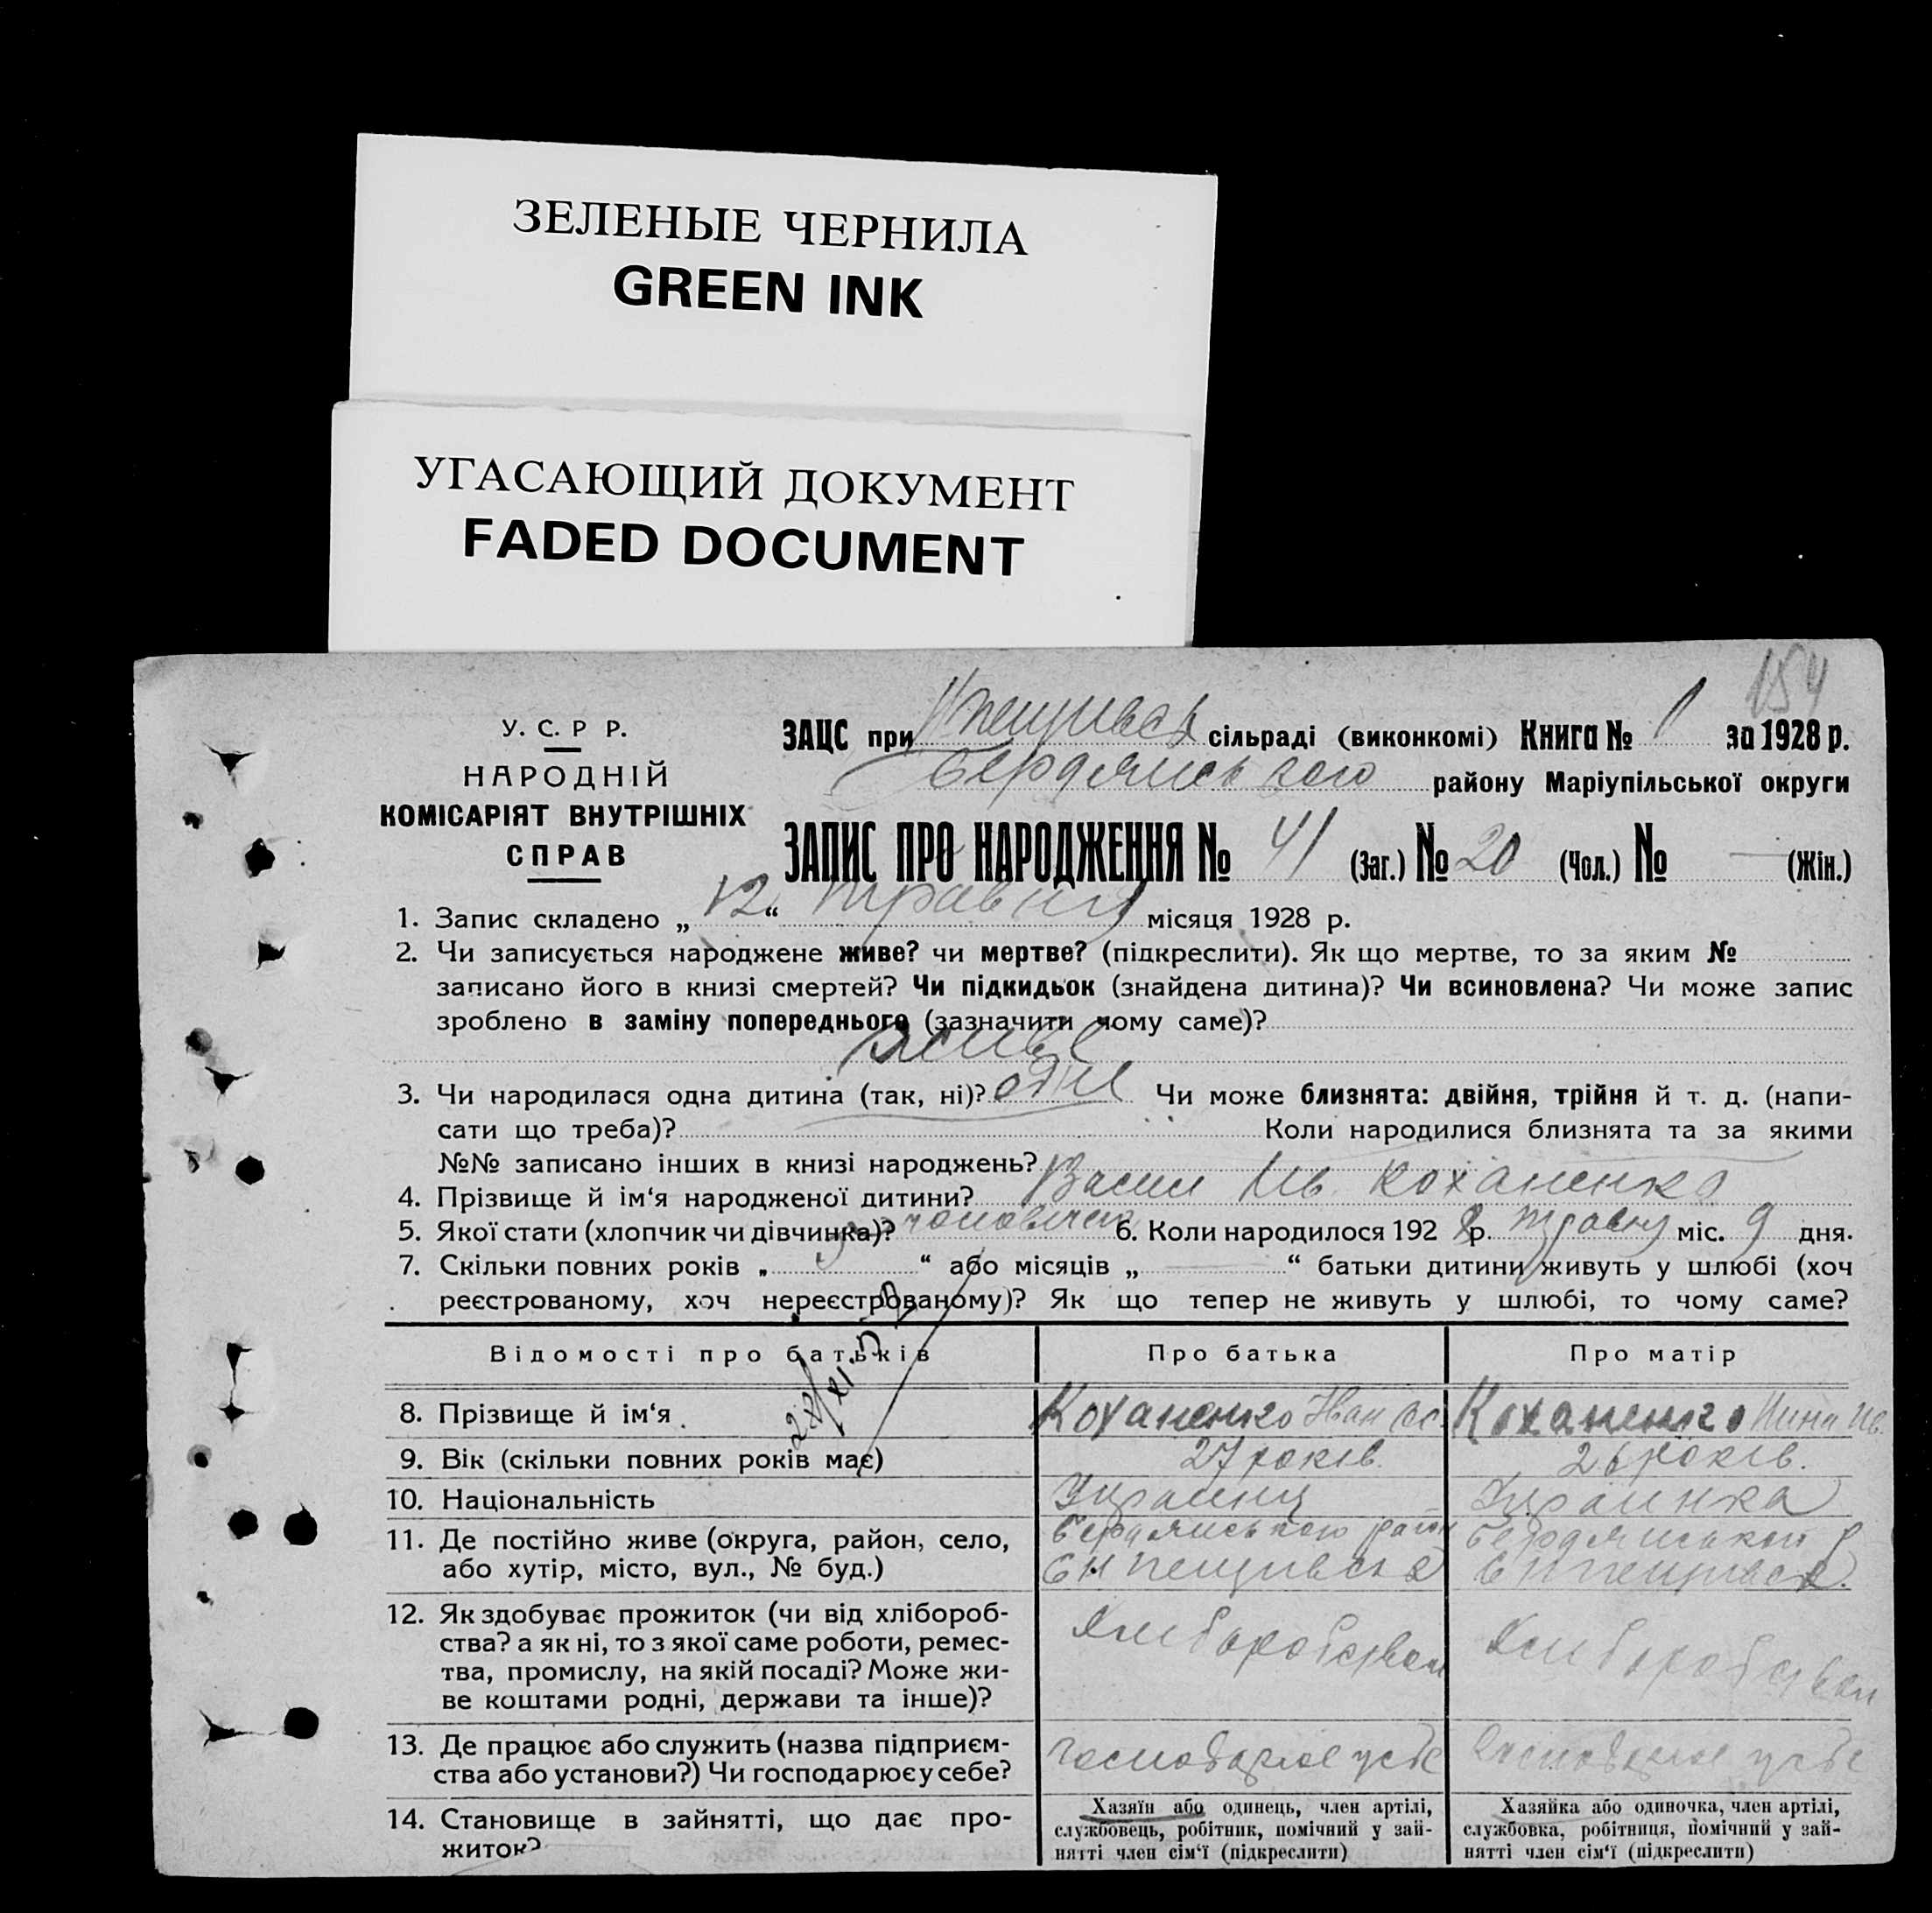 ЗЕЛЕНЫЕ ЧЕРНИЛА
GREEN INK
УГАСАЮЩИЙ ДОКУМЕНТ
FADED DOCUMENT
154
У. С. Р Р.
НАРОДНІЙ
КОМІСАРІЯТ ВНУТРІШНІХ
СПРАВ
ЗАЦС при сільраді (виконкомі) Книга № 1 за 1928 р.
Бердянського району Маріупільської округи
ЗАПИС ПРО НАРОДЖЕННЯ № 41 (Заг.) № 20 (Чол.) № — (Жін.)
1. Запис складено „ 12 “ травня місяця 1928 р.
2. Чи записується народжене живе? чи мертве? (підкреслити). Як що мертве, то за яким №
записано його в книзі смертей? Чи підкидьок (знайдена дитина)? Чи всиновлена? Чи може запис
зроблено в заміну попереднього (зазначити чому саме)?
живе
3. Чи народилася одна дитина (так, ні)? одне Чи може близнята: двійня, трійня й т. д. (напи-
сати що треба)? Коли народилися близнята та за якими
№№ записано інших в книзі народжень?
4. Прізвище й ім‘я народженої дитини? Васил Ів. Коханенко
5. Якої стати (хлопчик чи дівчинка)? 6. Коли народилося 192 8 р. травня міс. 9 дня.
7. Скільки повних років „ “ або місяців „ — “ батьки дитини живуть у шлюбі (хоч
реєстрованому, хоч нереєстрованому)? Як що тепер не живуть у шлюбі, то чому саме?
Відомості про батьків Про батька Про матір
8. Прізвище й ім‘я Коханенко Іван Ас. Коханенко Нина Ив.
9. Вік (скільки повних років має) 27 років. 26 років.
10. Національність Українц Українка
11. Де постійно живе (округа, район, село, Бердянського район Бердянськои р
або хутір, місто, вул., № буд.)
12. Як здобуває прожиток (чи від хлібороб-
ства? а як ні, то з якої саме роботи, ремес- Хлиборобством Хлиборобством
тва, промислу, на якій посаді? Може жи-
ве коштами родні, держави та інше)?
13. Де працює або служить (назва підприєм- господарює у себе господарює у себе
ства або установи?) Чи господарює у себе?
14. Становище в зайнятті, що дає про-
житок?
Хазяїн або одинець, член артілі,
службовець, робітник, помічний у зай-
нятті член сім‘ї (підкреслити)
Хазяйка або одиночка, член артілі,
службовка, робітниця, помічний у зай-
нятті член сім‘ї (підкреслити)